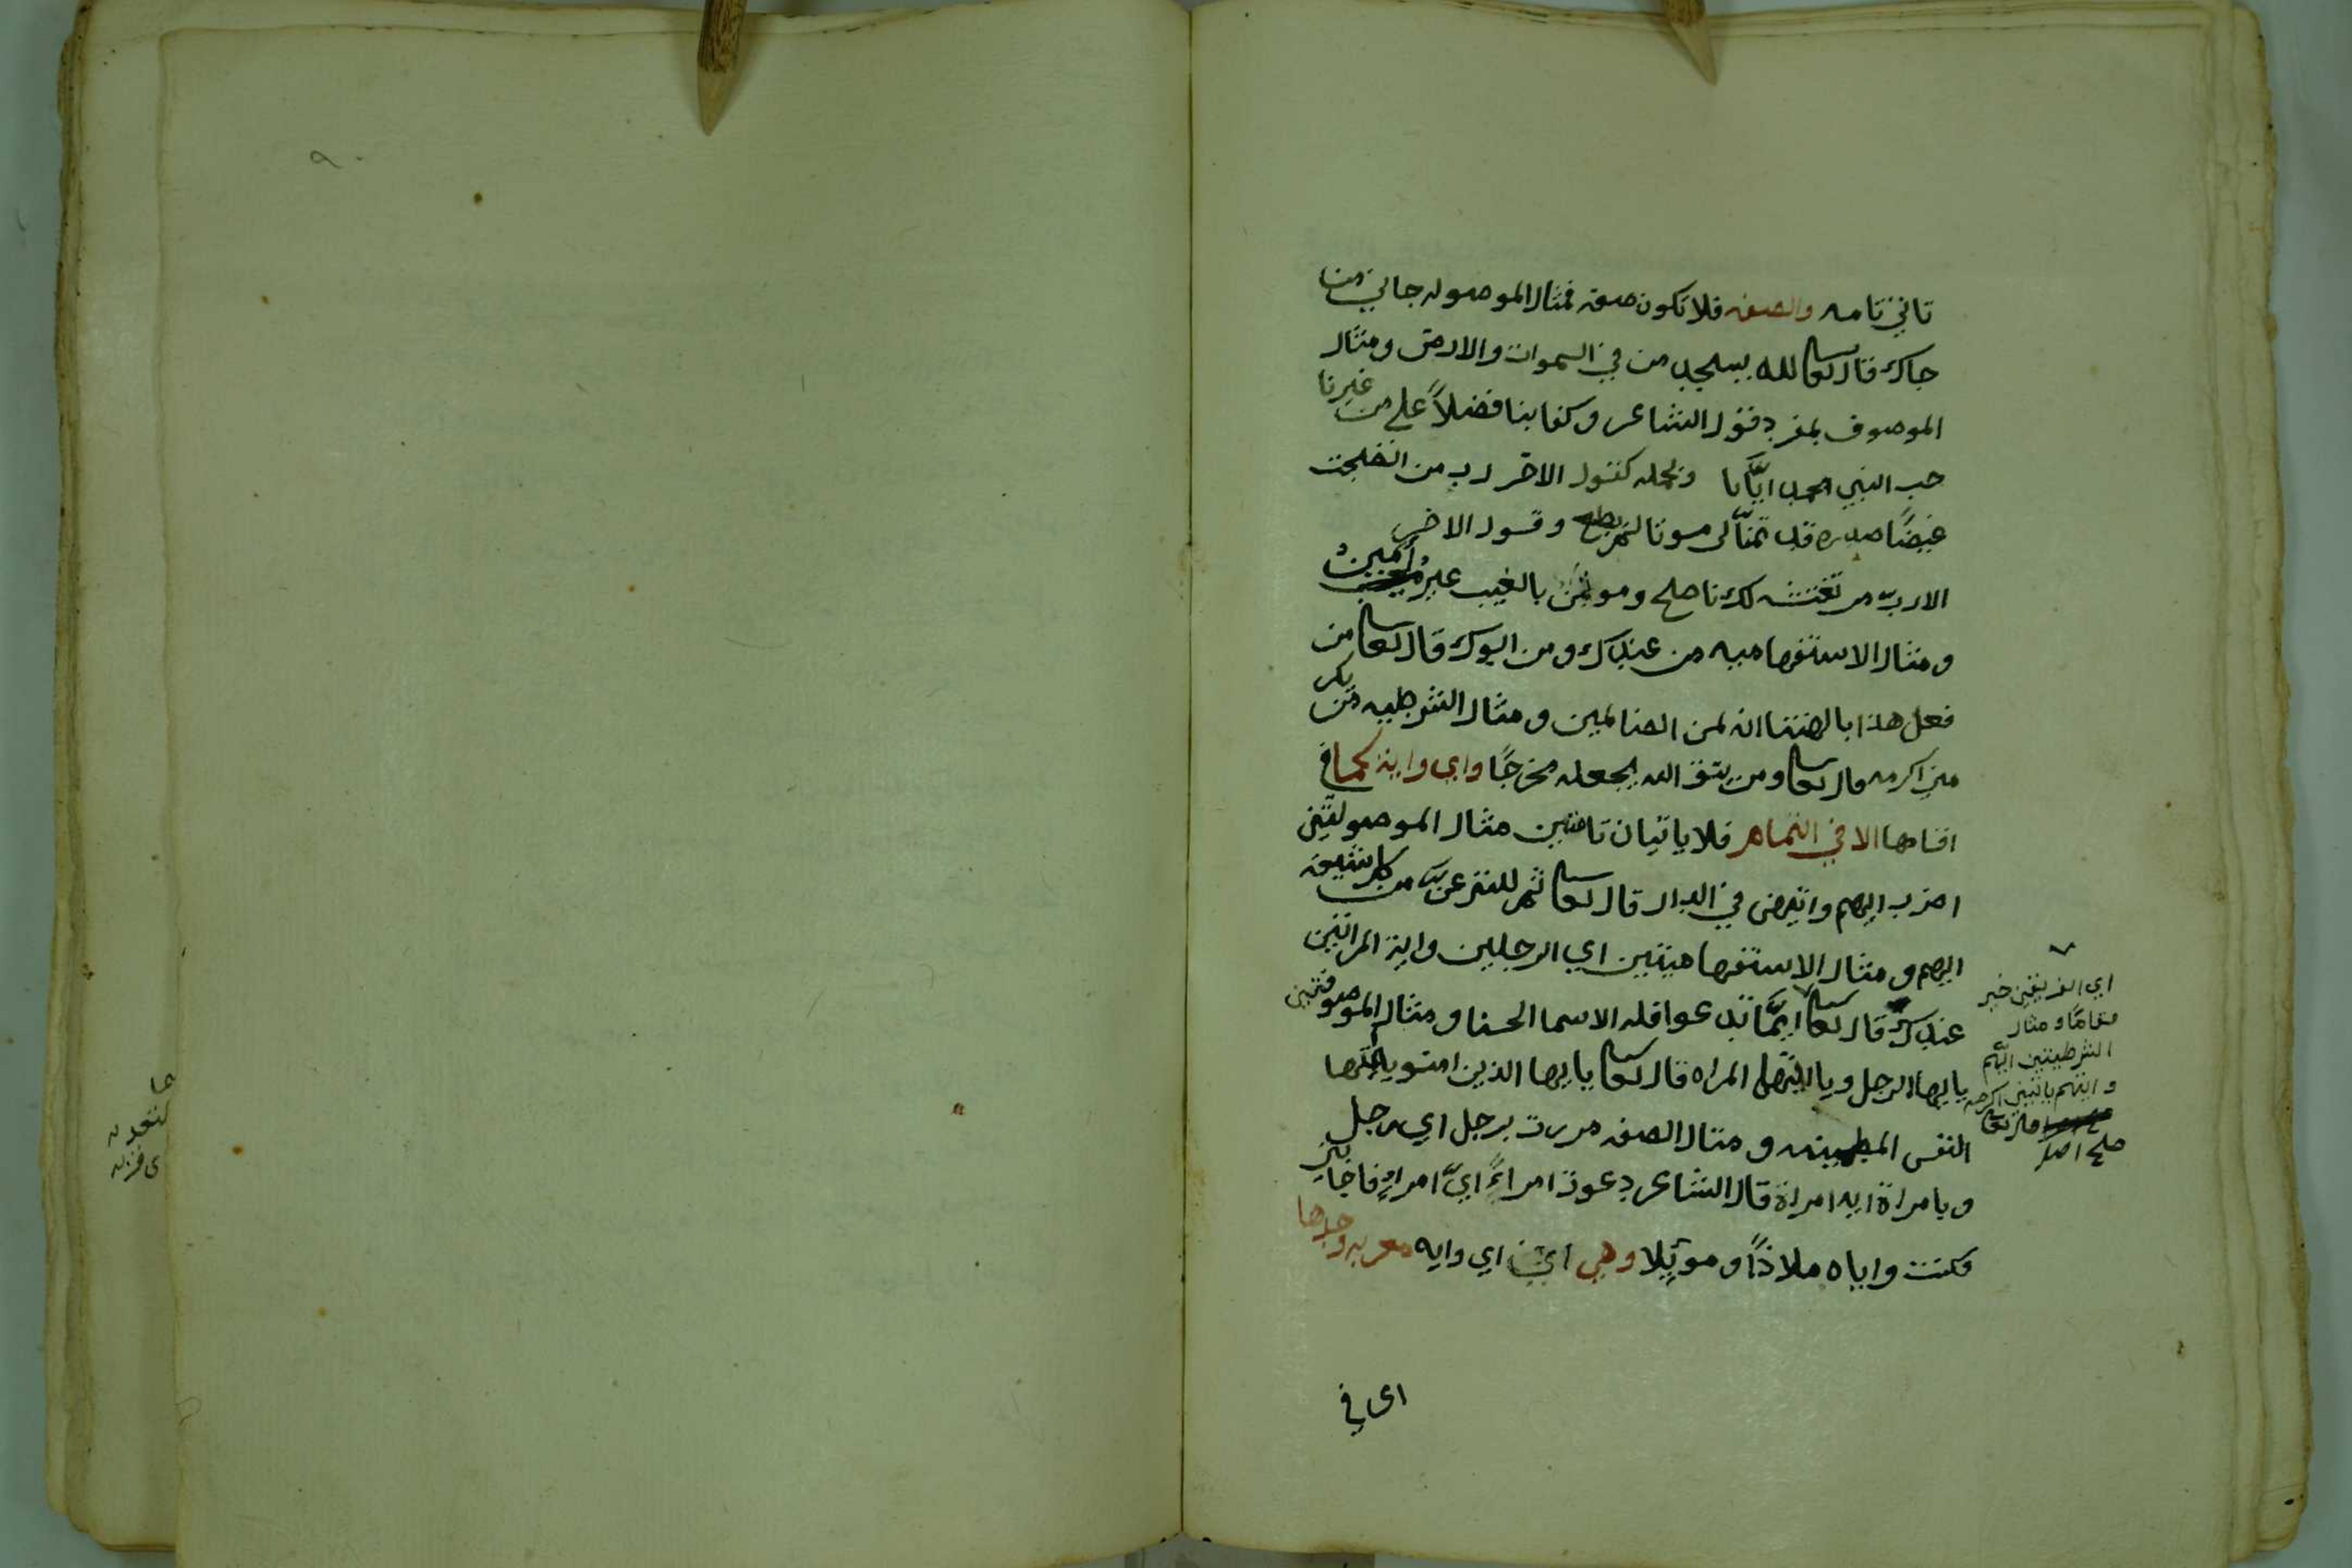 تاتي تامه والصفه فلا تكون صفه فمثال الموصوله جاني من
جاك قال تعالى لله يسجد من في السموات والارض ومثال
الموصوف بمفرد فقول الشاعر وكفا بنا فضلاً على من غيرنا
حب النبي محمد ايَّانا وبجمله كقول الاخر رب من انضجت
غيضًا صدره قد تمنّا لى موتا لم يطع وقول الاخر
الا ربّ من تغتشه لك ناصح ومؤتمن بالغيب غيرُ امينْ
ومثال الاستفهاميه من عندك ومن ابوك قال تعالى من
فعل هذا بالهتنا انه لمن الضالمين ومثال الشرطيه من يكر
مني اكرمه قال تعالى ومن يتق الله يجعل له مخرجًا واي واية كما في
اقسامها الا في التمام فلا ياتيان تامتين مثال الموصولتين
اضرب ايهم وايتهن في الدار قال تعالى ثم لننزعنّ من كل شيعه
ايهم ومثال الاستفهاميتين اي الرجلين واية المراتين
عندك قال تعالى ايمَّا تدعوا فله الاسما الحسنا ومثال الموصوفتين
يا ايها الرجل ويا ايتها المراه قال تعالى يا ايها الذين امنو يا ايتها
النفس المطمينه ومثال الصفه مررت برجل اي رجل
وبامراة ايه امراة قال الشاعر دعوت امراءً ايَّ امراءٍ فاجابني
فكنت واياه ملاذًا وموئلا وهي اي اي وايه معربه وحدها
اي في
اي الفريقين خير
مقامًا ومثال
الشرطيتين ايهم
وايتهم ياتيني اكرمه
قال تعالى
صلح اصل